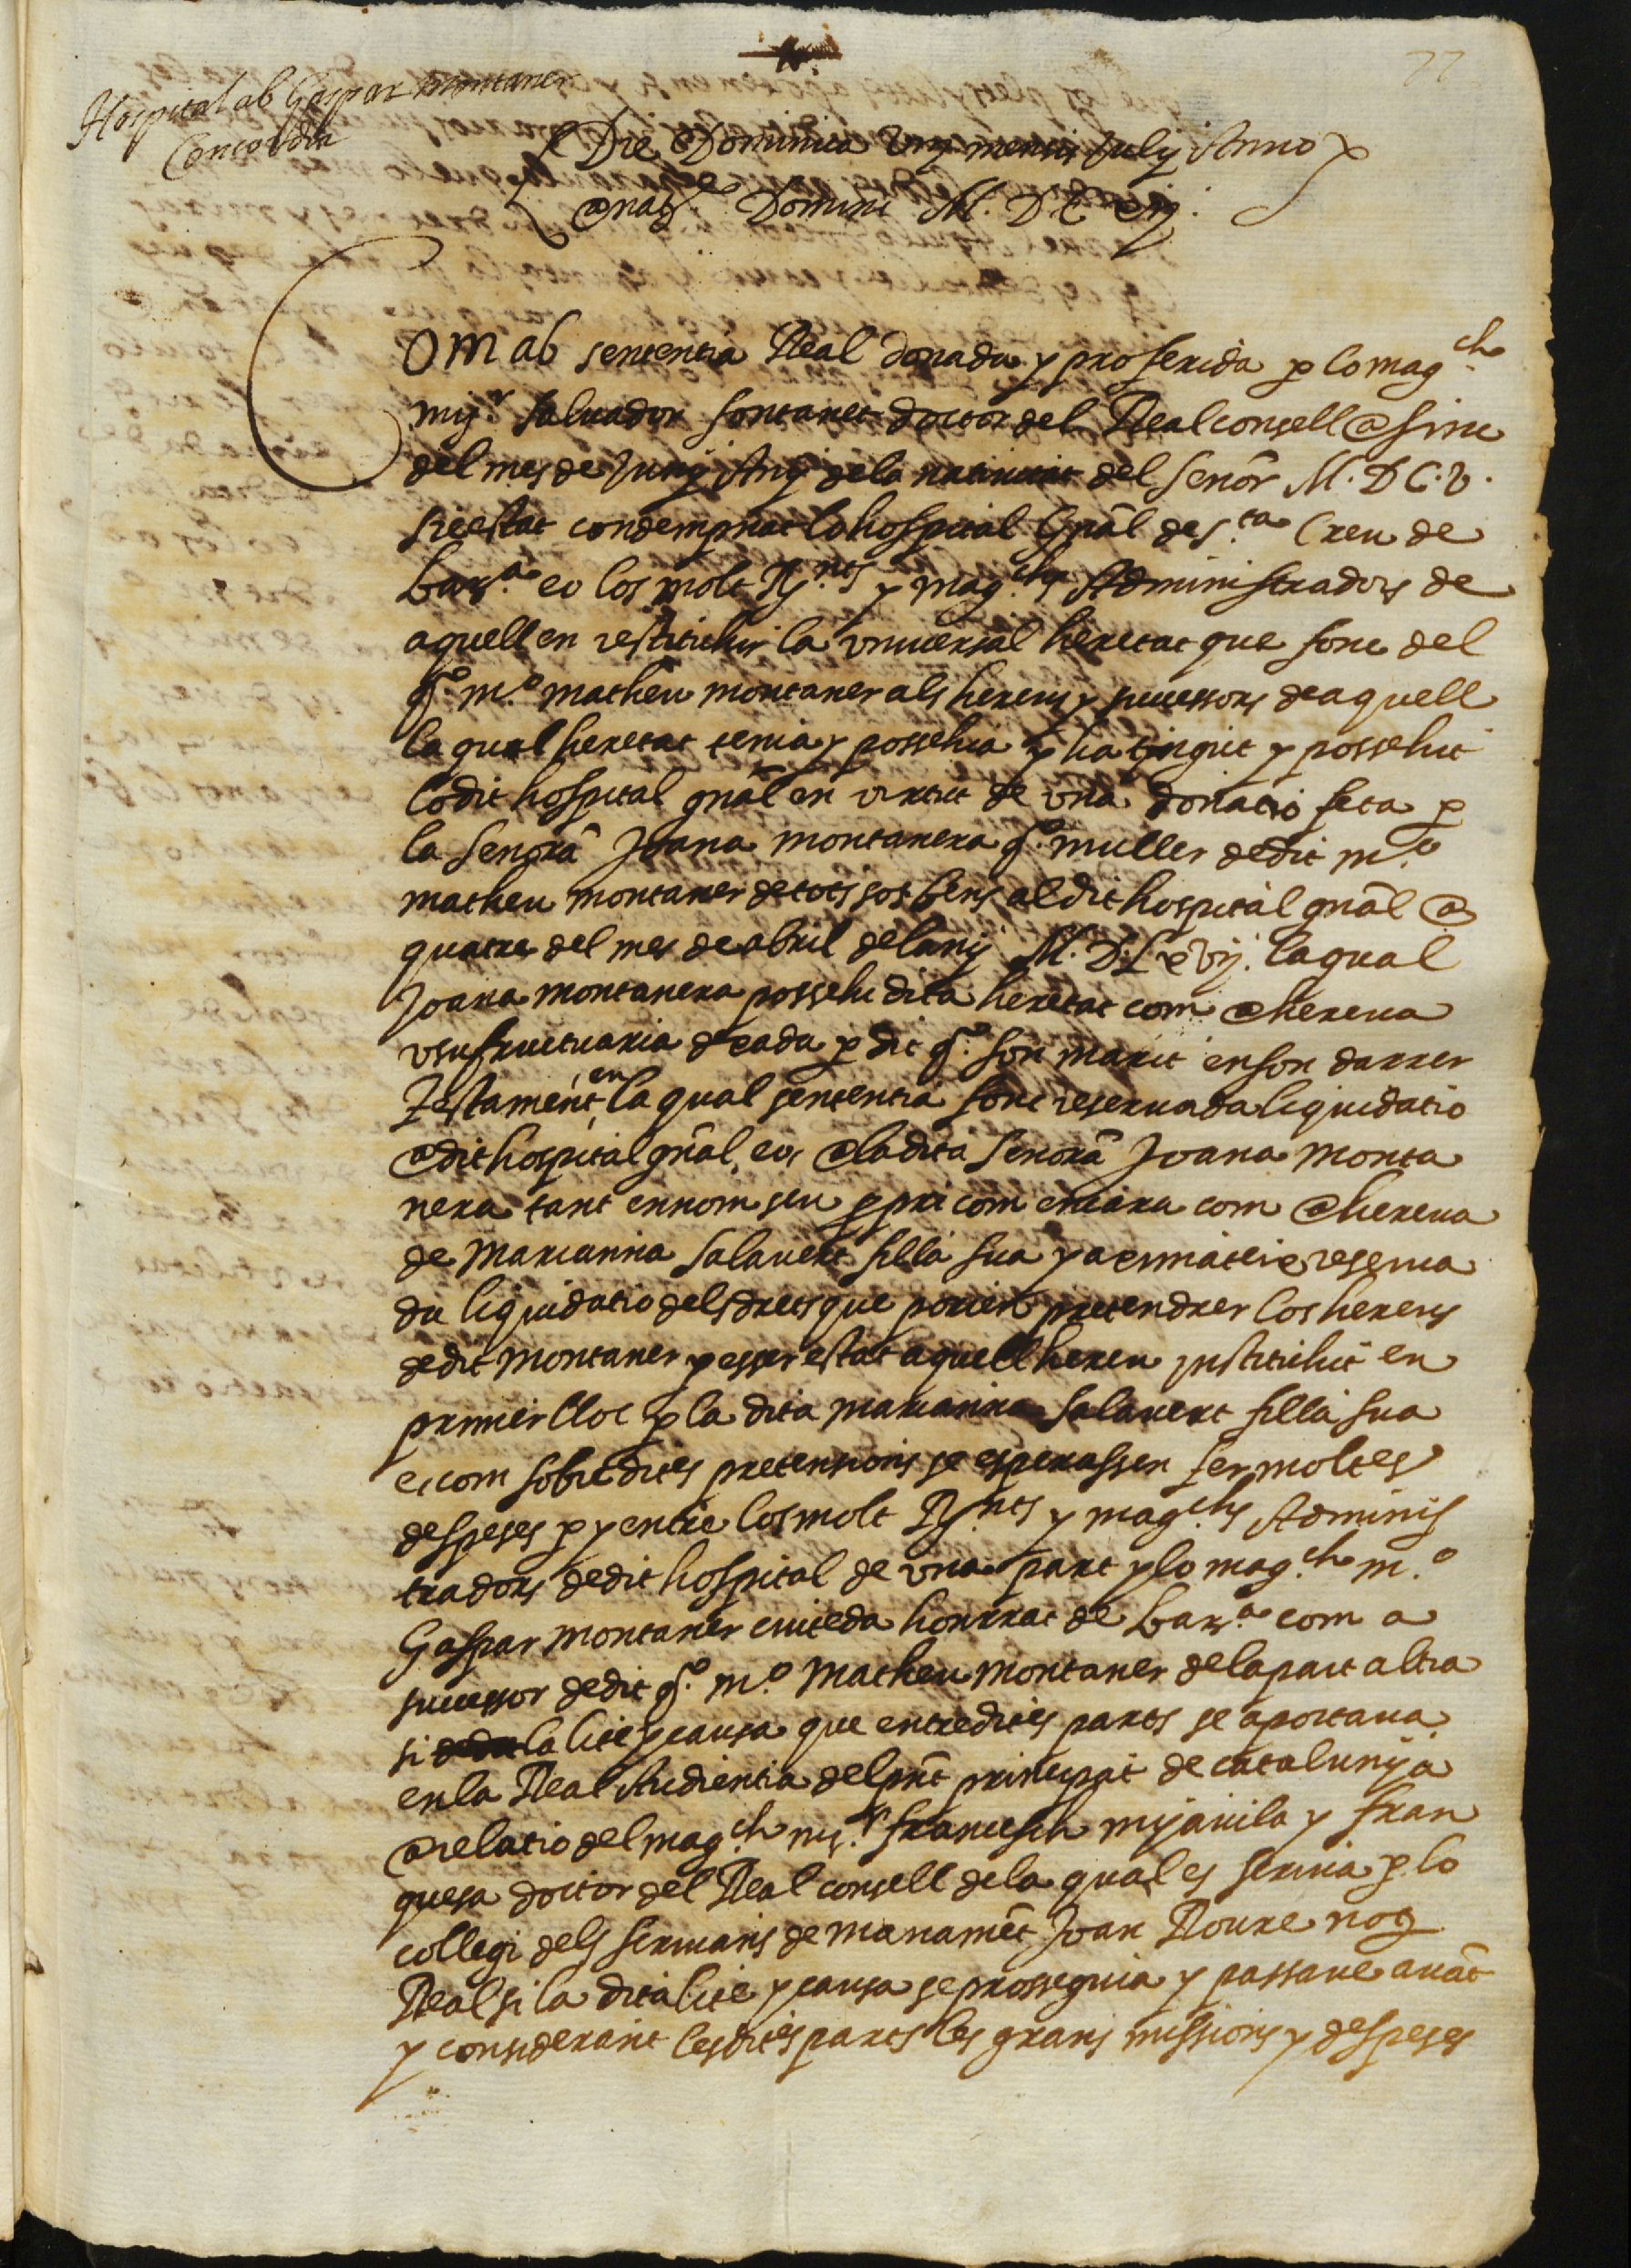 77
Hospital ab Gaspar Montaner
Concordia
Die Dominica viij mensis Julij Anno
anatte. Domini M. D C vij.
Com ab sententia Real donada y proferida p lo magch.
mijr. saluador fontanet doctor del Real consell a sinc
del mes de Junij Anij dela natiuitat del senõr M. D C. v.
sie estat condempnat lo hospital Gñal de s.ta Creu de
Barna. eo los molt Rs.nts y mag.chs Administradors de
aquell en restituhir la vniuersal heretat que fonc del
q.o m.o matheu montaner als hereus y sucessors de aquell
la qual heretat tenia y possehia y ha tingut y possehit
lo dit hospital gñal en virtut de vna donatio feta p
la senorã Joana montanera q.o muller de dit m.o
matheu montaner de tots sos bens al dit hospital gñal a
quatre del mes de abril del anij M. D. L x vij. la qual
Joana montanera possehi dita heretat com a hereua
vsufructuaria dexada p dit q.o son marit en son darrer
testament en la qual sententia fonc reseruada liquidatio
a dit hospital gñal, eo, a la dita senorã Joana monta
nera tant en nom seu ppri com encara com a hereua
de Marianna salauert filla sua y a ermateix reserua
da liquidatio dels drets que porien pretendrer los hereus
de dit montaner p esser estat aquell hereu instituhit en
primer lloc p la dita marianna salauert filla sua
e, com sobre dites pretensions se esperassen fer moltes
despeses p y entre los molt Rs.nts y mag.chs Adminis
tradors de dit hospital de vna part y lo mag.ch m.o
Gaspar montaner ciuteda honrrat de Barna. com a
sucessor de dit q.o m.o Matheu montaner de la part altra
si la lite y causa que entre dites parts se aportaua
en la Real Audientia del pñt principat de catalunija
a relatio del mag.ch mis.r francesch mijauila y fran
quesa doctor del Real consell de la qual es scriua p lo
collegi dels scriuans de manamẽt Joan Roure not.
Real si la dita lite y causa se prosseguia y passaue auãt
y considerant les dites parts les grans missions y despeses